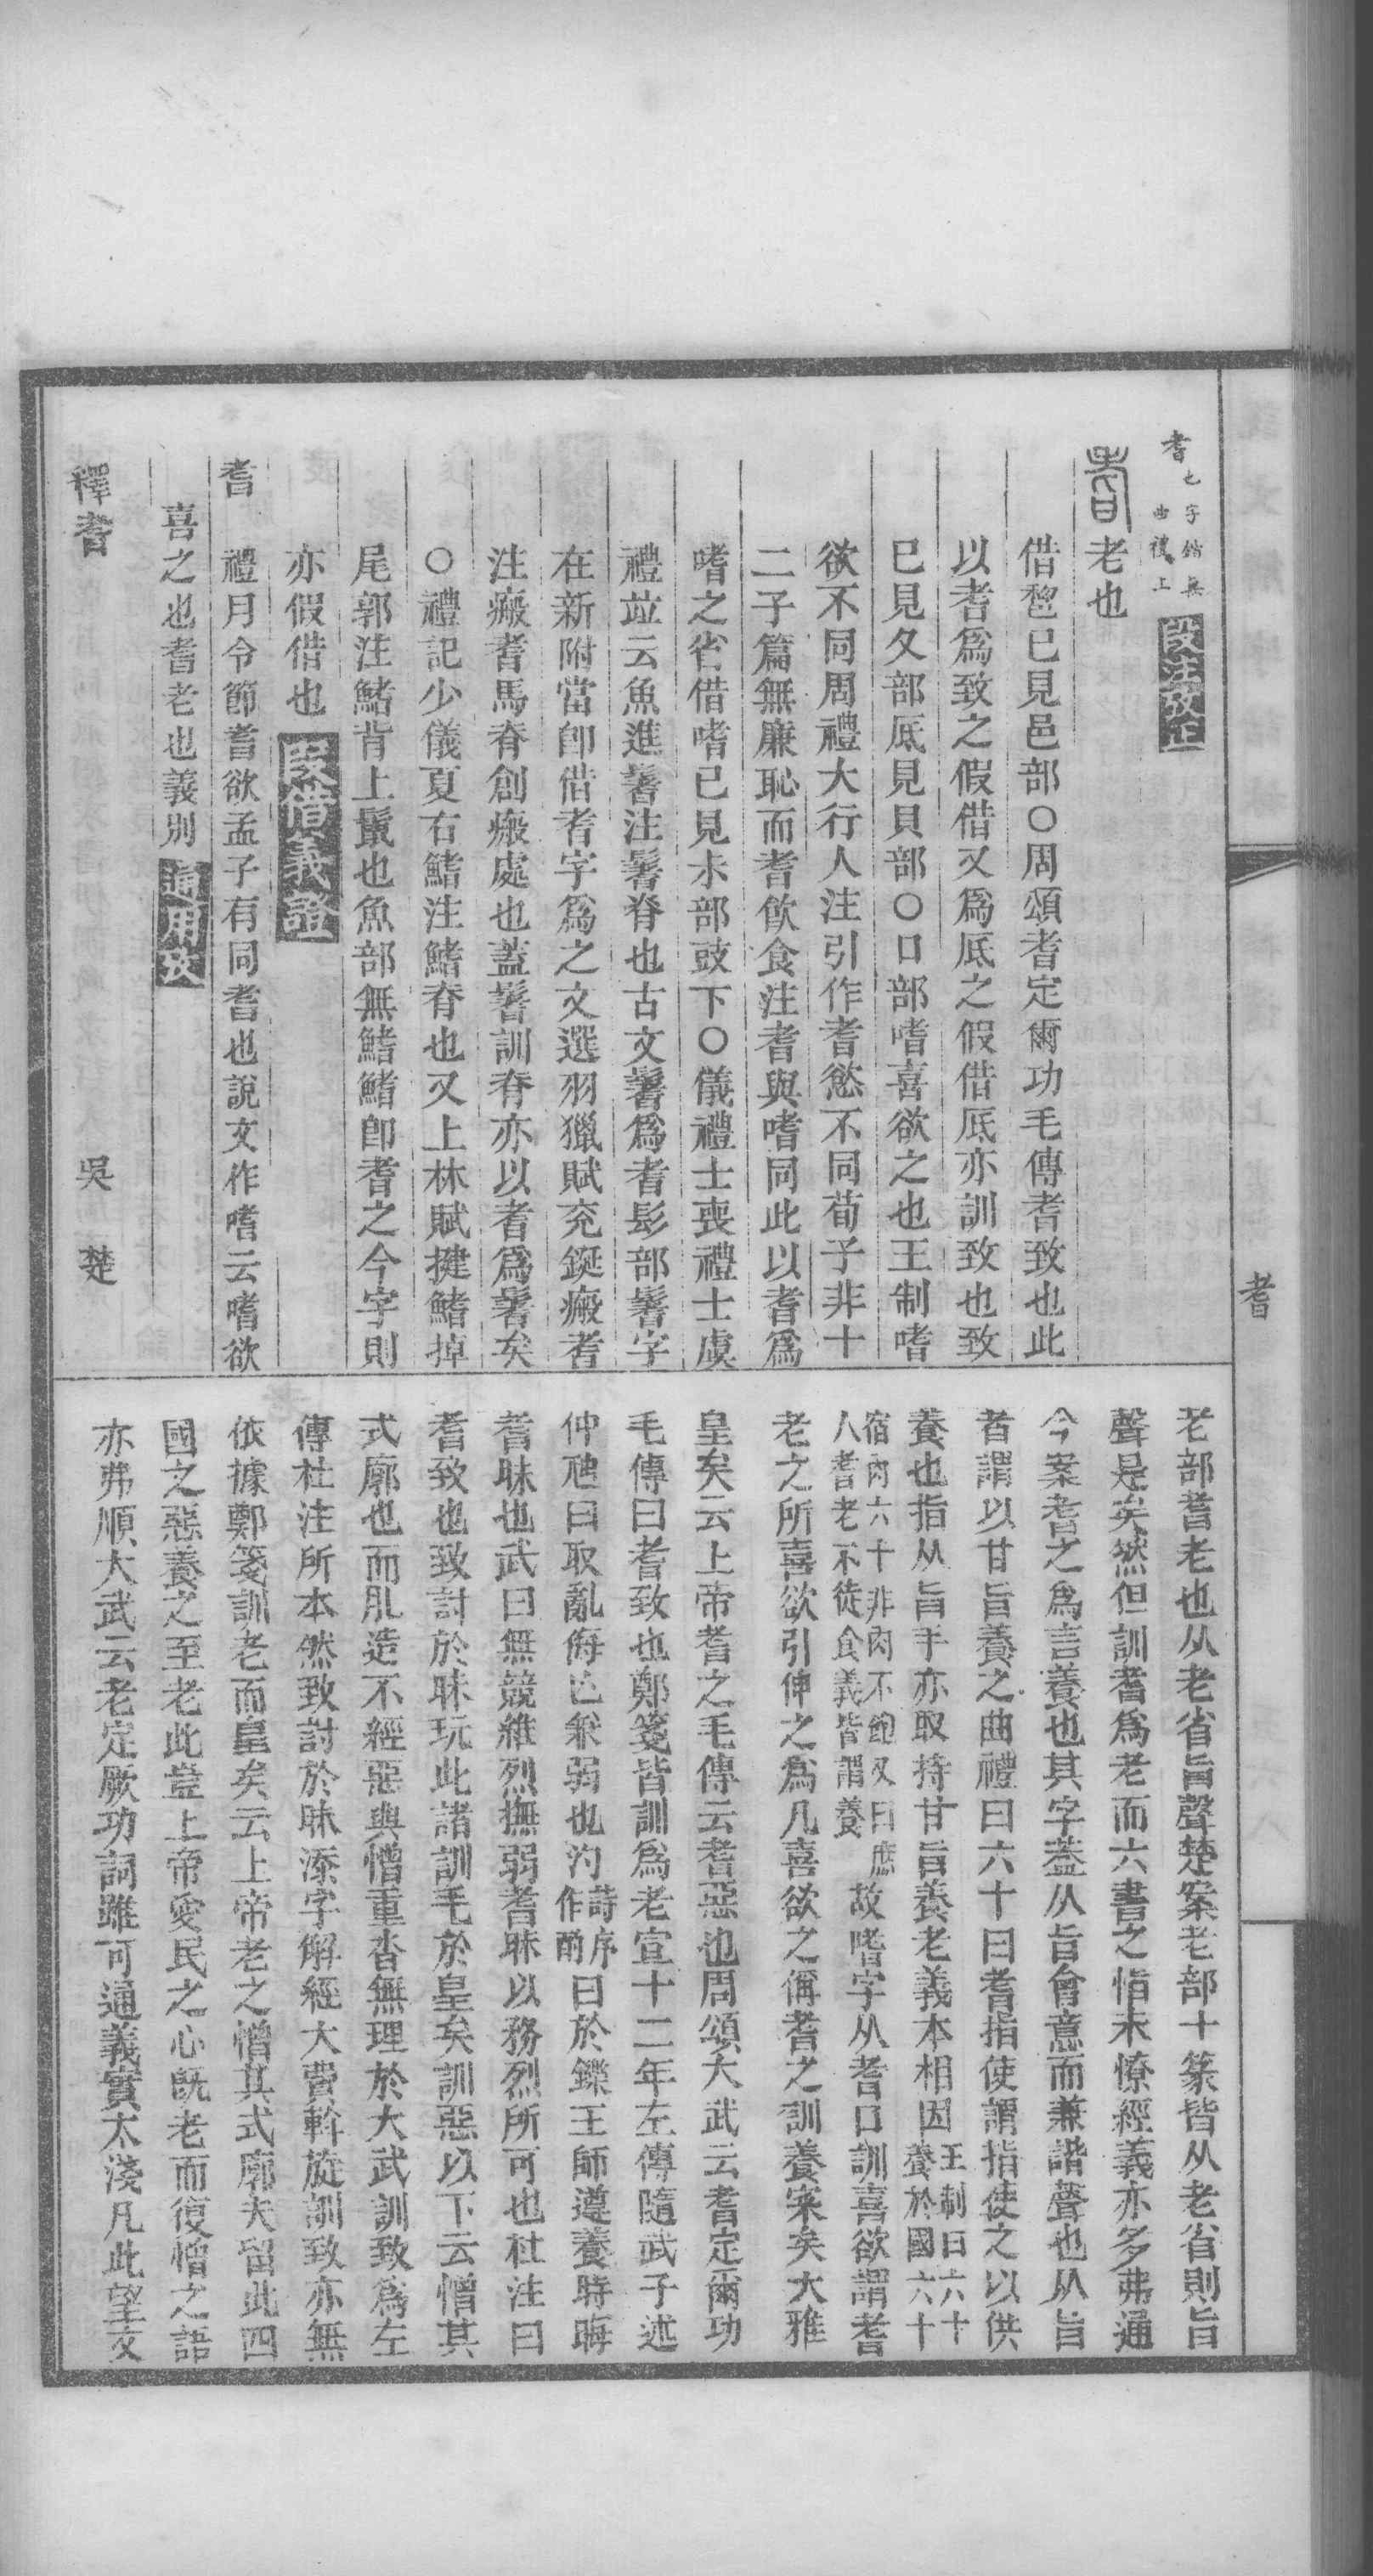 耆
耆之字鍇無
曲禮上
段注攷正
耆老也
借𦒿已見邑部〇周頌耆定爾功毛傳耆致也此
以耆爲致之假借又爲厎之假借厎亦訓致也致
已見夊部厎見貝部〇口部嗜喜欲之也王制嗜
欲不同周禮大行人注引作耆慾不同荀子非十
二子篇無廉恥而耆飲食注耆與嗜同此以耆爲
嗜之省借嗜已見尗部豉下〇儀禮士喪禮士虞
禮竝云魚進鬐注鬐脊也古文鬐爲耆髟部鬐字
在新附當卽借耆字爲之文選羽獵賦兖鋋瘢耆
注瘢耆馬脊創瘢處也蓋鬐訓脊亦以耆爲鬐矣
〇禮記少儀夏右鰭注鰭脊也又上林賦揵鰭掉
尾郭注鰭背上鬣也魚部無鰭鰭卽耆之今字則
亦假借也 段借義證
耆 禮月令節耆欲孟子有同耆也說文作嗜云嗜欲
喜之也耆老也義別 通用攷
釋耆 吳 楚
老部耆老也从老省旨聲楚案老部十篆皆从老省則旨
聲是矣然但訓耆爲老而六書之恉未憭經義亦多弗通
今案耆之爲言養也其字葢从旨會意而兼諧聲也从旨
者謂以甘旨養之曲禮曰六十曰耆指使謂指使之以供
養也指从旨手亦取持甘旨養老義本相因王制曰六十養於國六十
宿肉六十非肉不飽又曰庶八耆老不徒食義皆謂養故嗜字从耆口訓喜欲謂耆
老之所喜欲引伸之爲凡喜欲之偁耆之訓養案矣大雅
皇矣云上帝耆之毛傳云耆惡也周頌大武云耆定爾功
毛傳曰耆致也鄭箋皆訓爲老宣十二年左傳隨武子述
仲虺曰取亂侮亡兼弱也汋詩序作酌曰於鑠王師遵養時晦
耆昧也武曰無競維烈撫弱耆昧以務烈所可也杜注曰
耆致也致討於昧玩此諸訓毛於皇矣訓惡以下云憎其
式廓也而肊造不經惡與憎重沓無理於大武訓致爲左
傳杜注所本然致討於昧添字解經大費斡旋訓致亦無
依據鄭箋訓老而皇矣云上帝老之憎其式廓夫留此四
國之惡養之至老此豈上帝愛民之心旣老而復憎之語
亦弗順大武云老定厥功詞雖可通義實太淺凡此望文